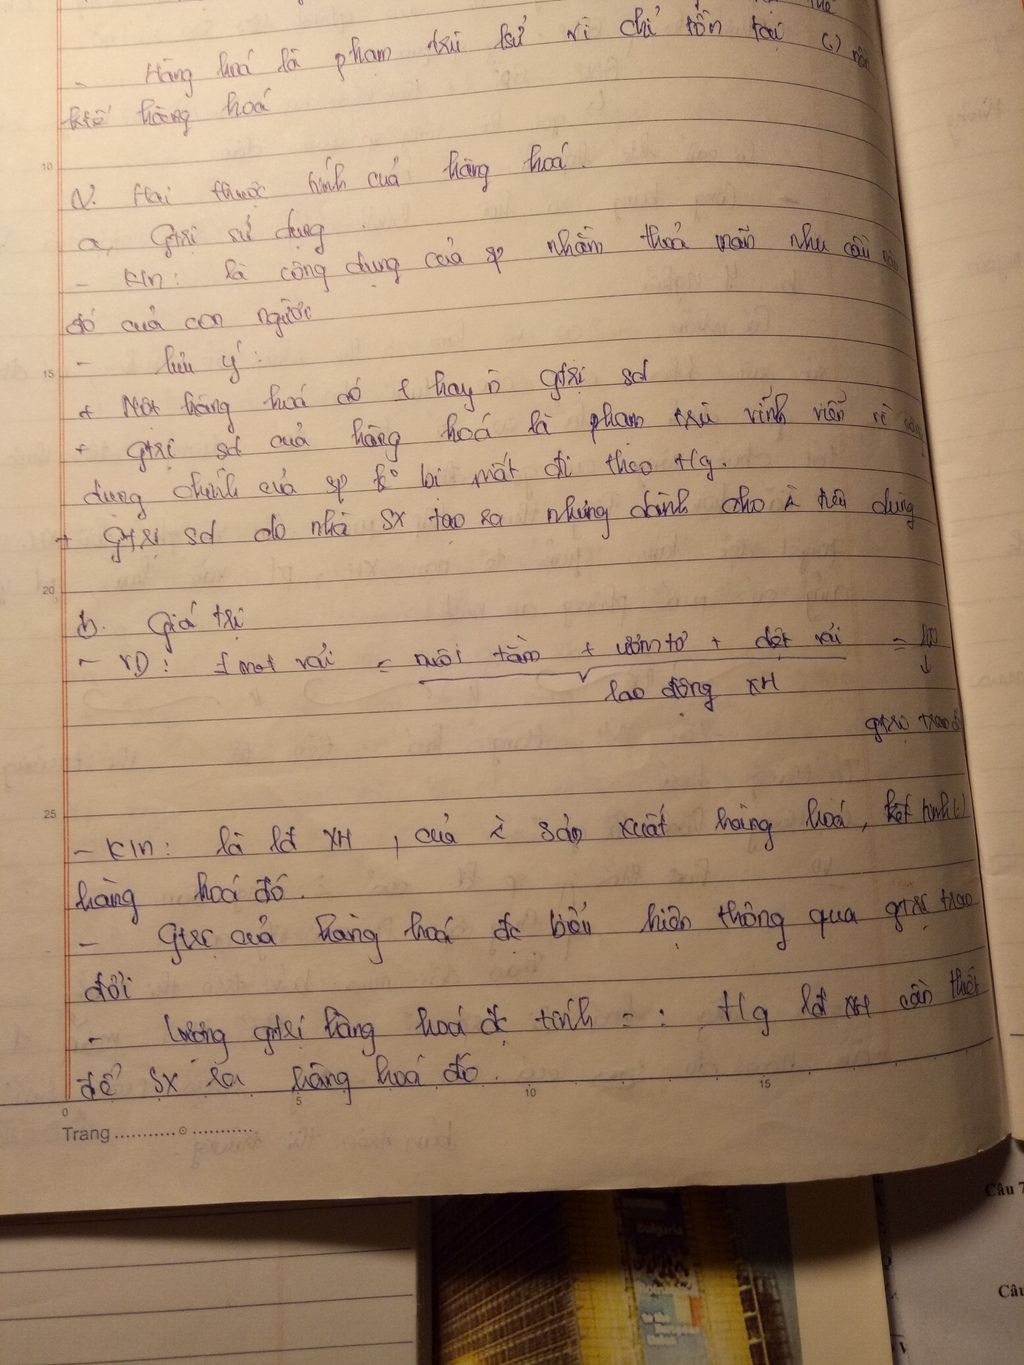 - Hàng hoá là phạm trù lsử vì chỉ tồn tại (.) nền
ktế hàng hoá
2. Hai thuộc tính của hàng hoá.
a, Gtrị sử dụng.
- KN: là công dụng của sp nhằm thoả mãn nhu cầu nào
đó của con người
- Lưu ý:
+ Một hàng hoá có 1 hay n gtrị sd
+ gtrị sd của hàng hoá là phạm trù vĩnh viễn vì công
dụng chính của sp k bị mất đi theo tg.
+ gtrị sd do nhà sx tạo ra nhưng dành cho tiêu dùng
b. Giá trị
- VD: 1 mét vải = nuôi tằm + ươm tơ + dệt vải = 100
lao động XH
gtrị trao đổi
- KN: là lđ XH, của sản xuất hàng hoá, kết tinh (.)
hàng hoá đó.
- Gtrị của hàng hoá đc biểu hiện thông qua gtrị trao
đổi
- Lượng gtrị hàng hoá đc tính = : tg lđ XH cần thiết
để sx ra hàng hoá đó.
10
15
20
25
0
5
10
15
Trang
Bulgaria
Câu 7
Câu